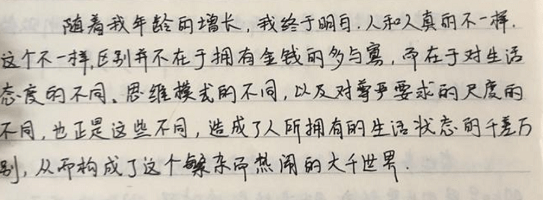 随着我年龄的增长，我终于明白，人和人真的不一样。
这个不一样，区别并不在于拥有金钱的多与寡，而在于对生活
态度的不同、思维模式的不同，以及对尊严要求的尺度的
不同，也正是这些不同，造成了人所拥有的生活状态的千差万
别，从而构成了这个繁杂而热闹的大千世界.